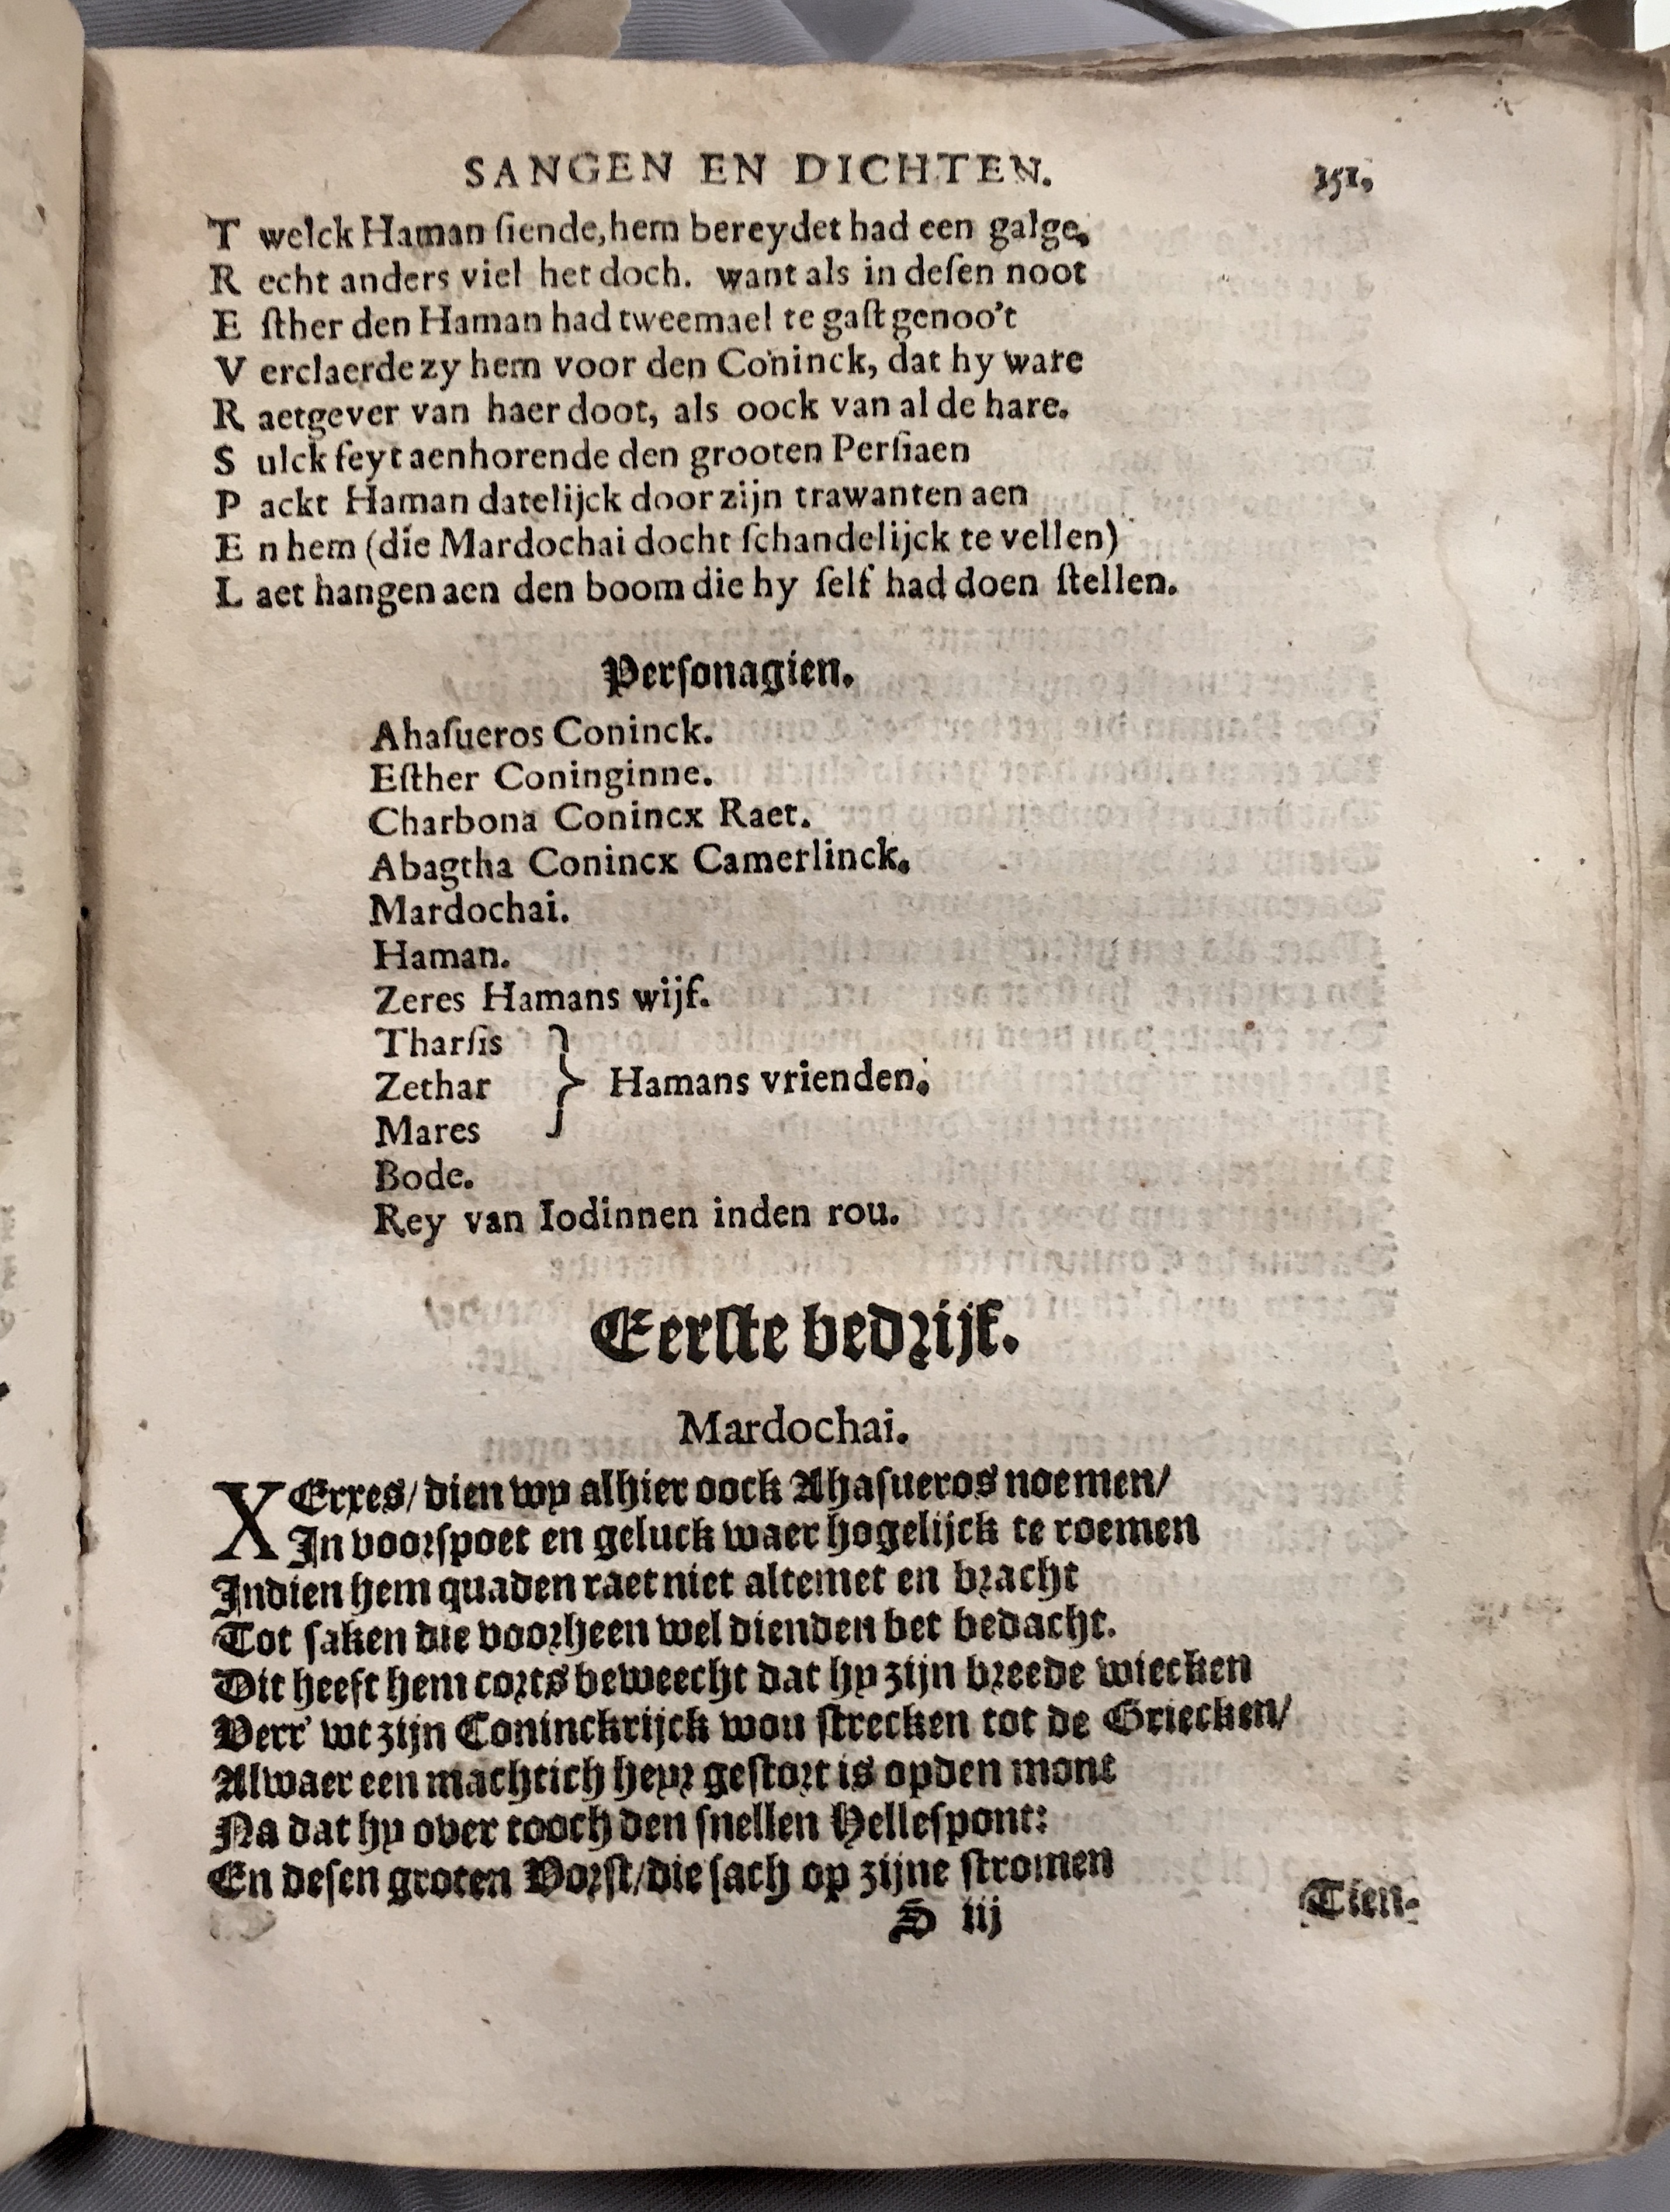 SANGEN EN DICHTEN. 351.
T welck Haman ſiende, hem bereydet had een galge.
R echt anders viel het doch. want als in deſen noot
E ſther den Haman had tweemael te gaſt genoo't
V erclaerde zy hem voor den Coninck, dat hy ware
R aetgever van haer doot, als oock van al de hare.
S ulck feyt aenhorende den grooten Perſiaen
P ackt Haman datelijck door zijn trawanten aen
E n hem (die Mardochai docht ſchandelijck te vellen)
L aet hangen aen den boom die hy ſelf had doen ſtellen.
Perſonagien.
Ahaſueros Coninck.
Eſther Coninginne.
Charbona Conincx Raet.
Abagtha Conincx Camerlinck.
Mardochai.
Haman.
Zeres Hamans wijf.
Tharſis
Zethar } Hamans vrienden.
Mares
Bode.
Rey van Iodinnen inden rou.
Eerſte bedrijf.
Mardochai.
XErxes/ dien wy alhier oock Ahaſueros noemen/
In voorſpoet en geluck waer hogelijck te roemen
Indien hem quaden raet niet altemet en bracht
Tot ſaken die voorheen wel dienden bet bedacht.
Dit heeft hem corts beweecht dat hy zijn breede wiecken
Verr' wt zijn Coninckrijck wou ſtrecken tot de Griecken/
Alwaer een machtich heyr geſtort is opden mont
Na dat hy over tooch den ſnellen Helleſpont:
En deſen groten Vorſt/ die ſach op zijne ſtromen
S iij Tien-